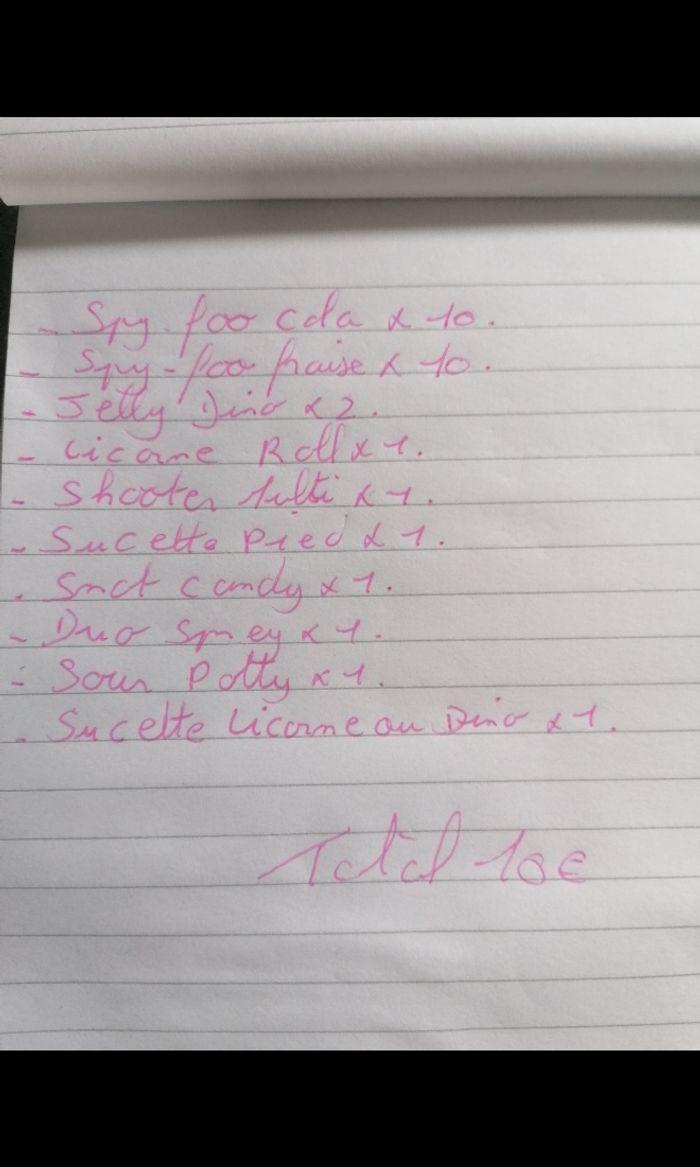 - Spy-foo cola x 10.
- Spy-foo fraise x 10.
- Jelly Dino x 2.
- Licorne Roll x 1.
- Shooter tutti x 1.
- Sucette Pied x 1.
- candy x 1.
- Duo Sprey x 1.
- Sour Potty x 1.
- Sucette Licorne ou Dino x 1.
Total 10€